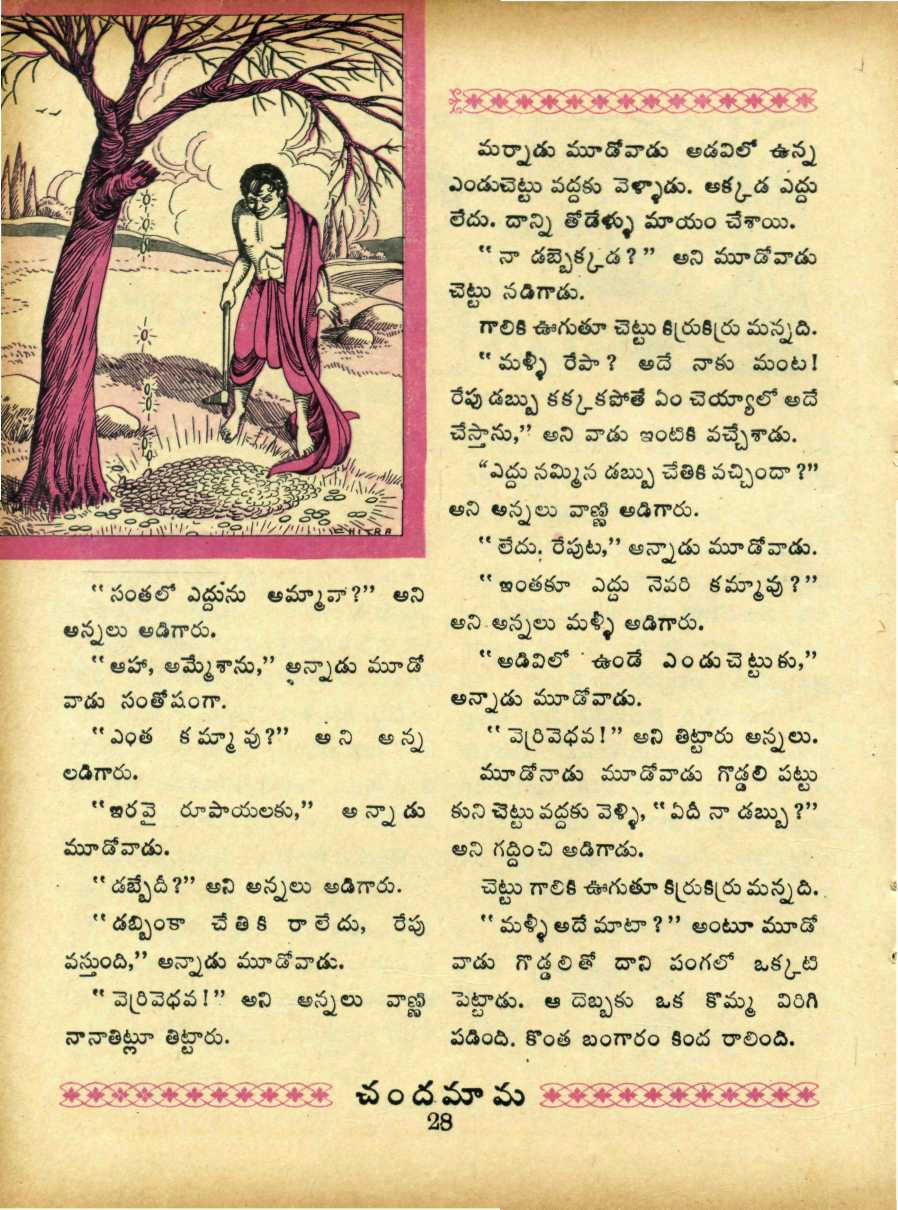 CHITRA
"సంతలో ఎద్దును అమ్మావా?" అని
అన్నలు అడిగారు.
"ఆహా, అమ్మేశాను," అన్నాడు మూడో
వాడు సంతోషంగా.
"ఎంత కమ్మావు?" అని అన్న
లడిగారు.
"ఇరవై రూపాయలకు," అన్నాడు
మూడోవాడు.
"డబ్బేదీ?" అని అన్నలు అడిగారు.
"డబ్బింకా చేతికి రాలేదు, రేపు
వస్తుంది," అన్నాడు మూడోవాడు.
"వెర్రివెధవ!" అని అన్నలు వాణ్ణి
నానాతిట్లూ తిట్టారు.
మర్నాడు మూడోవాడు అడవిలో ఉన్న
ఎండుచెట్టు వద్దకు వెళ్ళాడు. అక్కడ ఎద్దు
లేదు. దాన్ని తోడేళ్ళు మాయం చేశాయి.
"నా డబ్బెక్కడ?" అని మూడోవాడు
చెట్టు నడిగాడు.
గాలికి ఊగుతూ చెట్టు కిర్రుకిర్రు మన్నది.
"మళ్ళీ రేపా? అదే నాకు మంట!
రేపు డబ్బు కక్కకపోతే ఏం చెయ్యాలో అదే
చేస్తాను," అని వాడు ఇంటికి వచ్చేశాడు.
"ఎద్దు నమ్మిన డబ్బు చేతికి వచ్చిందా?"
అని అన్నలు వాణ్ణి అడిగారు.
"లేదు. రేపుట," అన్నాడు మూడోవాడు.
"ఇంతకూ ఎద్దు నెవరి కమ్మావు?"
అని అన్నలు మళ్ళీ అడిగారు.
"అడివిలో ఉండే ఎండుచెట్టుకు,"
అన్నాడు మూడోవాడు.
"వెర్రివెధవ!" అని తిట్టారు అన్నలు.
మూడోనాడు మూడోవాడు గొడ్డలి పట్టు
కుని చెట్టు వద్దకు వెళ్ళి, "ఏదీ నా డబ్బు?"
అని గద్దించి అడిగాడు.
చెట్టు గాలికి ఊగుతూ కిర్రుకిర్రు మన్నది.
"మళ్ళీ అదే మాటా?" అంటూ మూడో
వాడు గొడ్డలితో దాని పంగలో ఒక్కటి
పెట్టాడు. ఆ దెబ్బకు ఒక కొమ్మ విరిగి
పడింది. కొంత బంగారం కింద రాలింది.
చందమామ
28